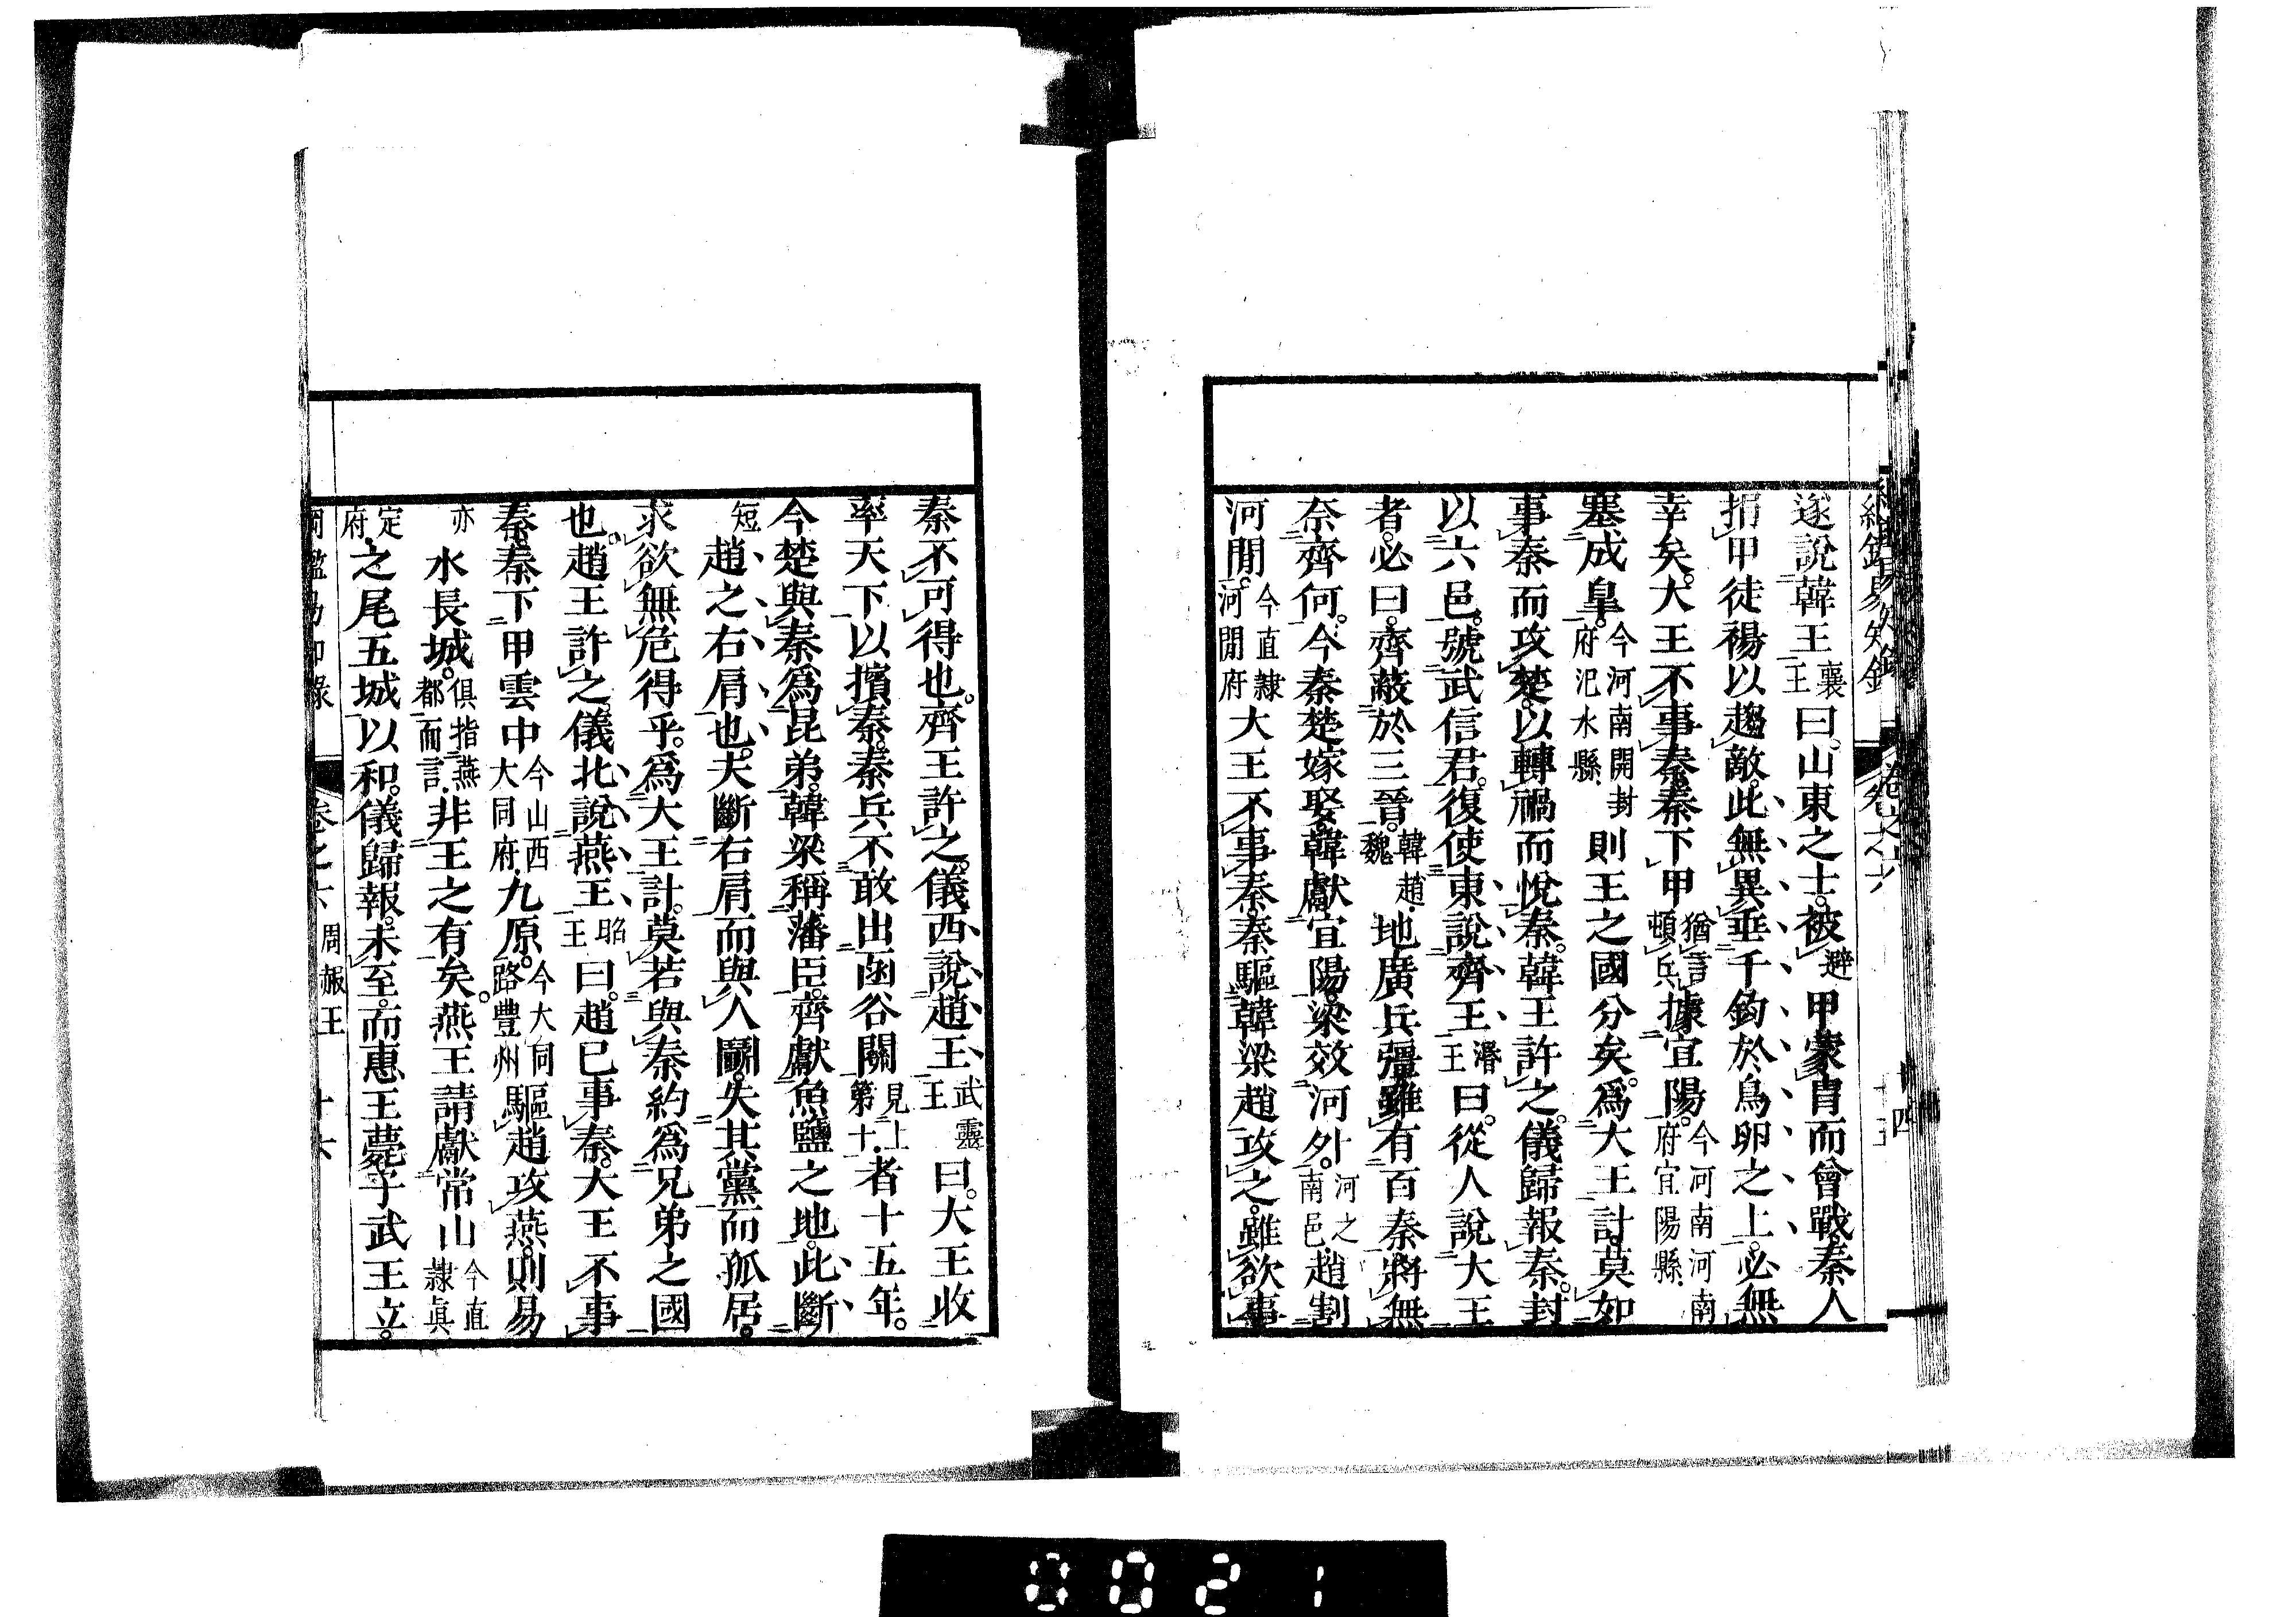 遂說韓王襄王曰。山東之士。被避甲蒙冑而會戰。秦人
捐甲徒裼以趨敵。此無異垂千鈞於鳥卵之上。必無
幸矣。大王不事秦。秦下甲猶言頓兵據宜陽。今河南河南府宜陽縣
塞成皐。今河南開封府汜水縣則王之國分矣。爲大王計。莫如
事秦而攻楚。以轉禍而悅秦。韓王許之。儀歸報秦。封
以六邑。號武信君。復使東說齊王湣王曰。從人說大王
者。必曰。齊蔽於三晉。韓趙魏地廣兵彊。雖有百秦。將無
奈齊何。今秦楚嫁娶。韓獻宜陽。梁效河外。河之南邑趙割
河閒。今直隸河閒府大王不事秦。秦驅韓梁趙攻之。雖欲事
秦不可得也。齊王許之。儀西說趙王武靈王曰。大王收
率天下以擯秦。秦兵不敢出函谷關見上第十者十五年。
今楚與秦爲昆弟。韓梁稱藩臣。齊獻魚鹽之地。此斷
短趙之右肩也。夫斷右肩而與人鬭。失其黨而孤居。
求欲無危得乎。爲大王計。莫若與秦約爲兄弟之國
也。趙王許之。儀北說燕王昭王曰。趙已事秦。大王不事
秦。秦下甲雲中今山西大同府九原。今大同路豐州驅趙攻燕。則易
亦水長城。俱指燕都而言非王之有矣。燕王請獻常山今直隸眞
定府之尾五城以和。儀歸報。未至。而惠王薨。子武王立。
卷之六 周赧王 十六
0021